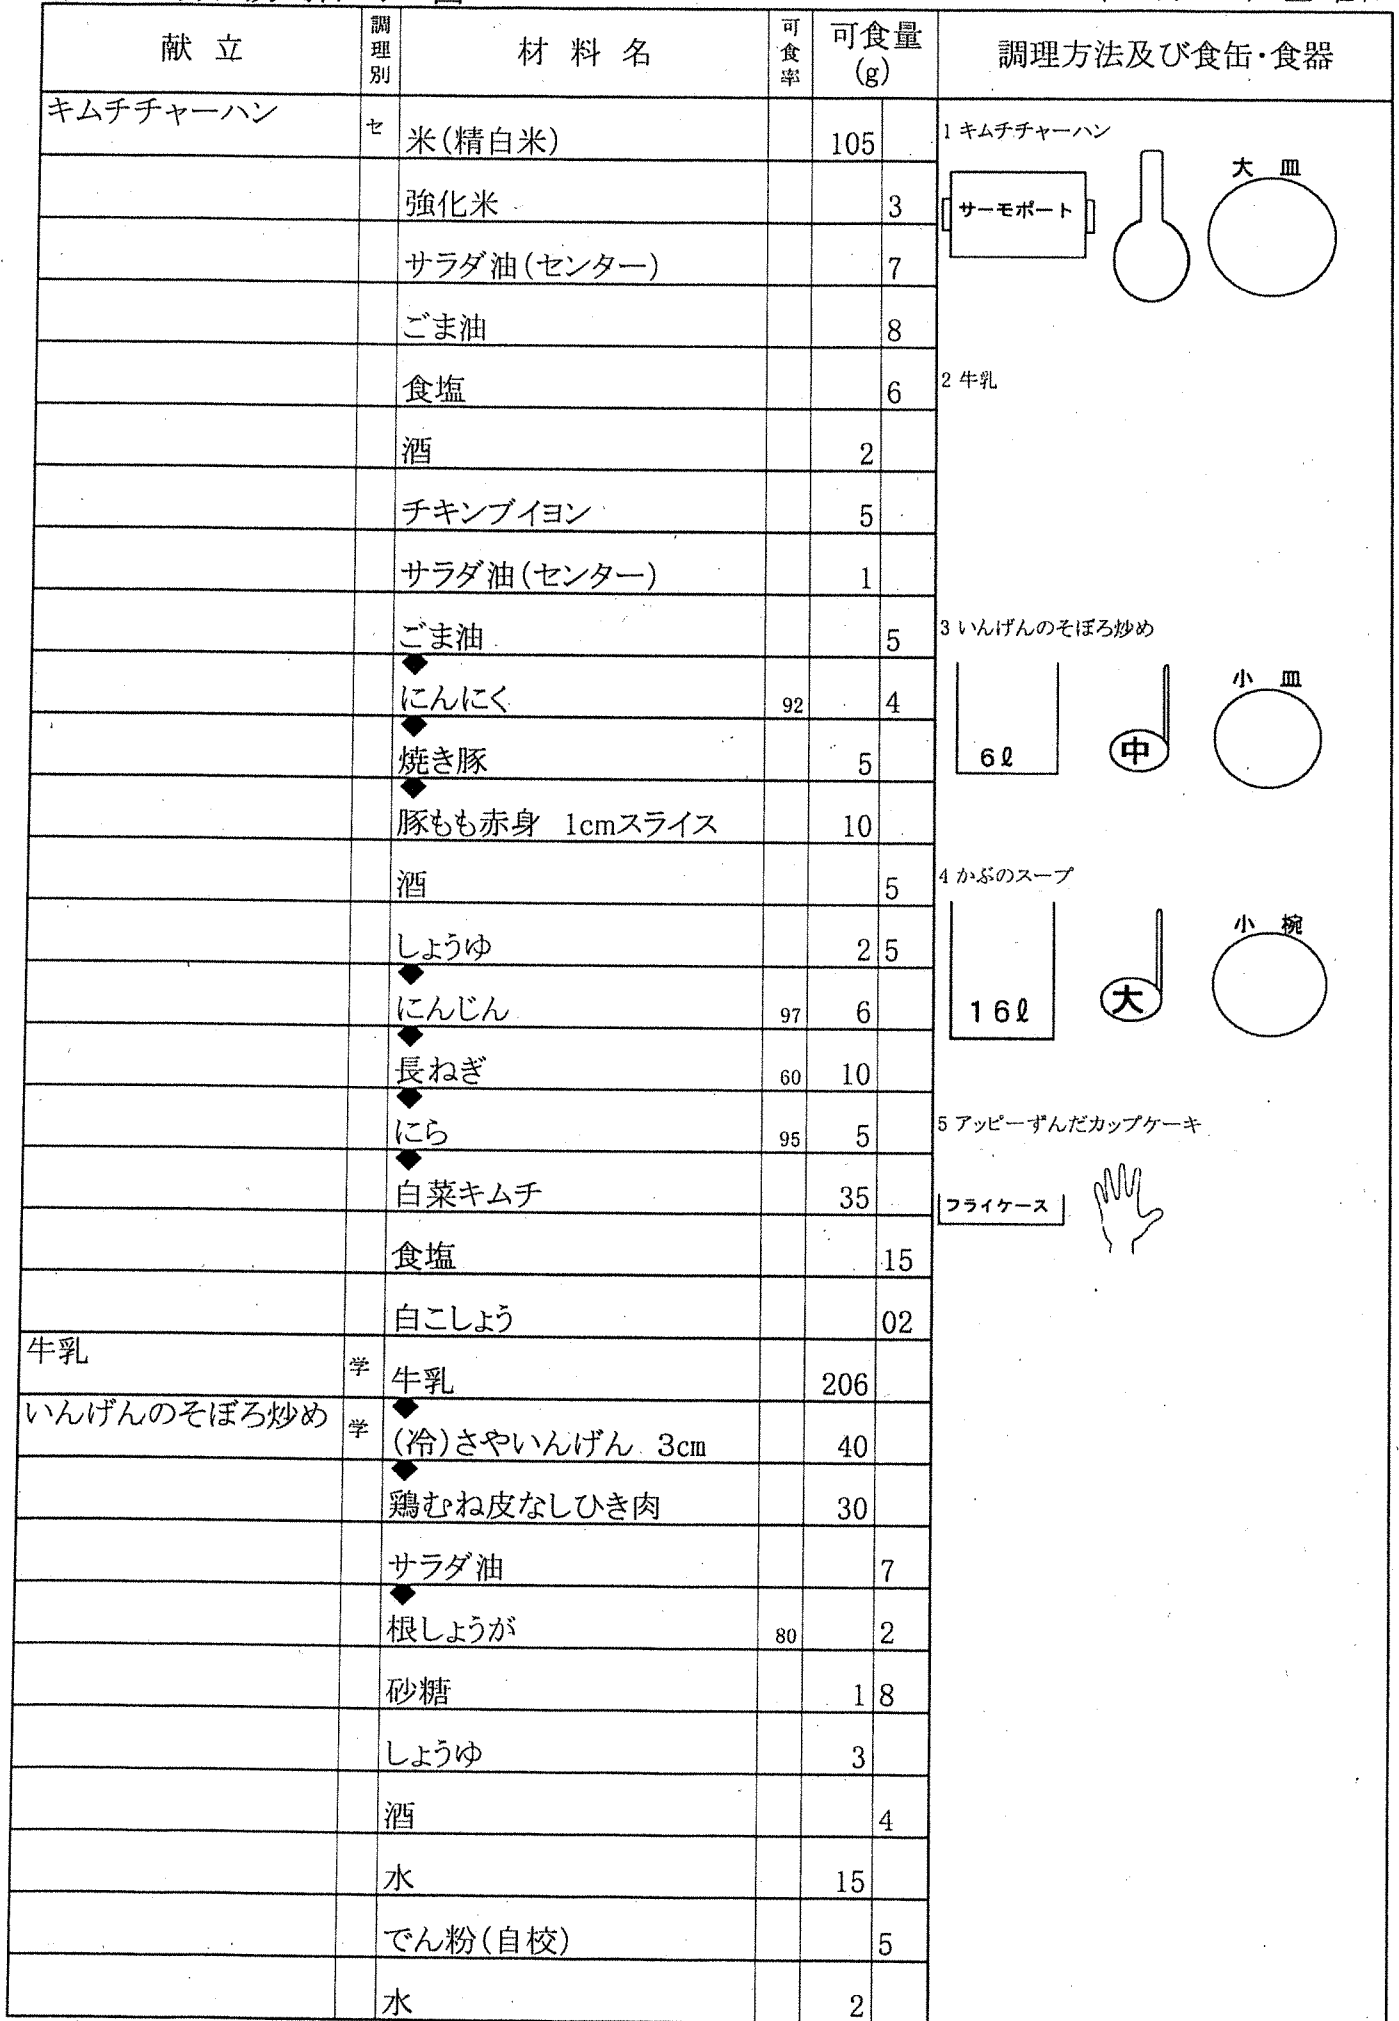 献立 調理別 材料名 可食率 可食量(g) 調理方法及び食缶・食器
キムチチャーハン セ 米(精白米) 105
強化米 3
サラダ油(センター) 7
ごま油 8
食塩 6
酒 2
チキンブイヨン 5
サラダ油(センター) 1
ごま油 5
◆
にんにく 92 4
◆
焼き豚 5
◆
豚もも赤身 1cmスライス 10
酒 5
しょうゆ 2 5
◆
にんじん 97 6
◆
長ねぎ 60 10
◆
にら 95 5
◆
白菜キムチ 35
食塩 15
白こしょう 02
牛乳 学 牛乳 206
◆
いんげんのそぼろ炒め 学 (冷)さやいんげん 3cm 40
◆
鶏むね皮なしひき肉 30
サラダ油 7
◆
根しょうが 80 2
砂糖 1 8
しょうゆ 3
酒 4
水 15
でん粉(自校) 5
水 2
1 キムチチャーハン
サーモポート
大 皿
2 牛乳
3 いんげんのそぼろ炒め
6ℓ
中
小 皿
4 かぶのスープ
16ℓ
大
小 椀
5 アッピーずんだカップケーキ
フライケース